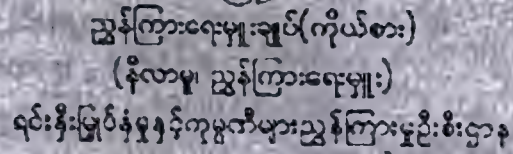 ညွှန်ကြားရေးမှူးချုပ်(ကိုယ်စား)
(နီလာမူ၊ ညွှန်ကြားရေးမှူး)
ရင်းနှီးမြှုပ်နှံမှုနှင့်ကုမ္ပဏီများညွှန်ကြားမှုဦးစီးဌာန